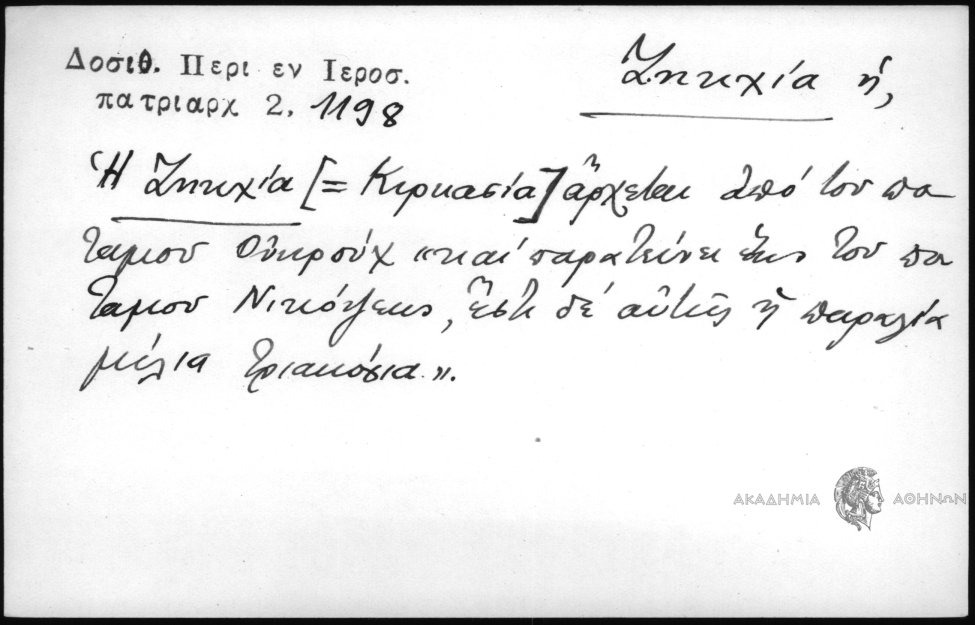 Δοσιθ. Περι εν Ιεροσ.
πατριαρχ 2, 1198
Ζηκχία ἡ,
Ἡ Ζηκχία [= Κιρκασία] ἄρχεται ἀπό του πο-
ταμου Οὐκρούχ "καί παρατείνει ἕως του πο
ταμου Νικόψεως, ἔστι δέ αὐτῆς ἡ παραλία
μίλια τριακόσια".
ΑΚΑΔΗΜΙΑ ΑΘΗΝΩΝ